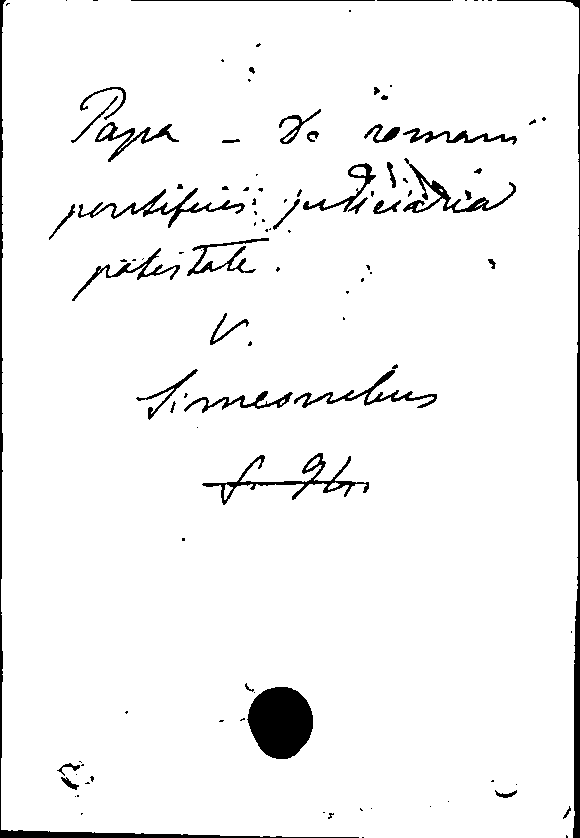 Papa - De romani
pontificis judiciaria
potestate.
V.
Simeonibus